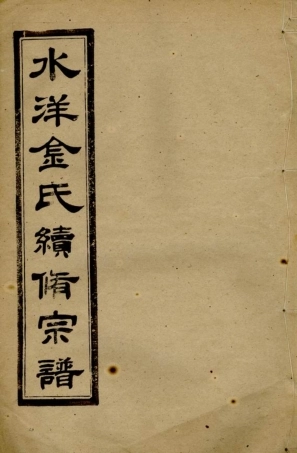 水洋金氏續脩宗譜